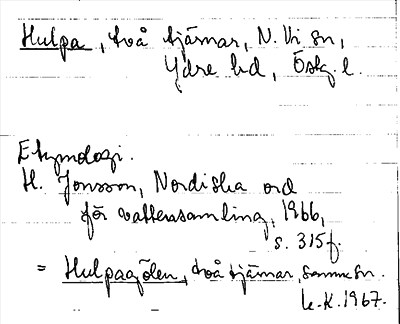 Hulpa, två tjärnar, N. Vi sn,
Ydre hd, Östg. l.
Etymologi.
H. Jonsson, Nordiska ord
för vattensamling, 1966,
s. 315 f.
= Hulpagölen, två tjärnar, samma sn.
L.K. 1967.